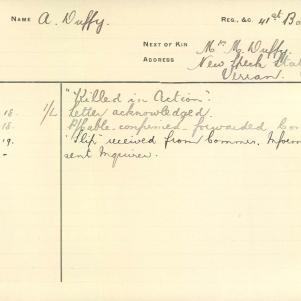 NAME A. Duffy. REG., &C. 41st Ba
NEXT OF KIN Mrs M. Duffy.
ADDRESS New
Verran.
"Killed in Action".
18. 1/L Letter acknowledged.
18. confirmed. forwarded
19. "Slip" received from
- sent Inquirer.